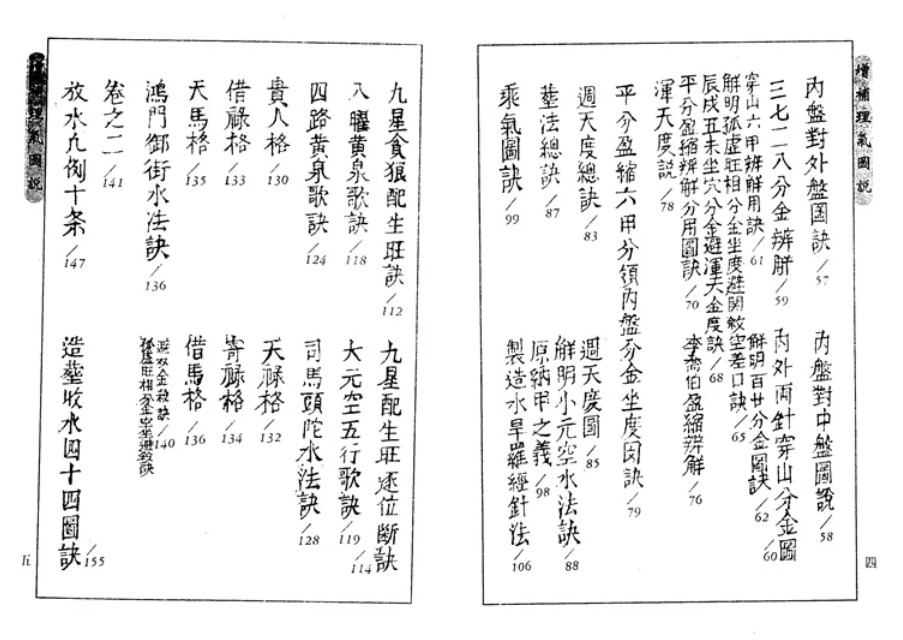 增補理氣圖說
內盤對外盤圖訣/57
內盤對中盤圖說/58
三七二八分金辨解/59
內外兩針穿山分金圖/60
穿山六甲辨解用訣/61
解明百廿分金圖訣/62
解明孤虛旺相分金坐度避関煞空差口訣/65
辰戌丑未坐穴分金避渾天金度訣/68
平分盈縮辨解分用圖訣/70
李喬伯盈縮辨解/76
渾天度說/78
平分盈縮六甲分領內盤分金坐度因訣/79
週天度總訣/83
週天度圖/85
塟法總訣/87
解明小元空水法訣/88
原納甲之義/98
乘氣圖訣/99
製造水旱羅經針法/106
四
九星貪狼配生旺訣/112
九星配生旺逐位斷訣/114
八曜黃泉歌訣/118
大元空五行歌訣/119
四路黃泉歌訣/124
司馬頭陀水法訣/128
貴人格/130
天祿格/132
借祿格/133
寄祿格/134
天馬格/135
借馬格/136
鴻門御街水法訣/136
/140
卷之二/141
放水凡例十条/147
造塟收水四十四圖訣/155
理氣圖說
五